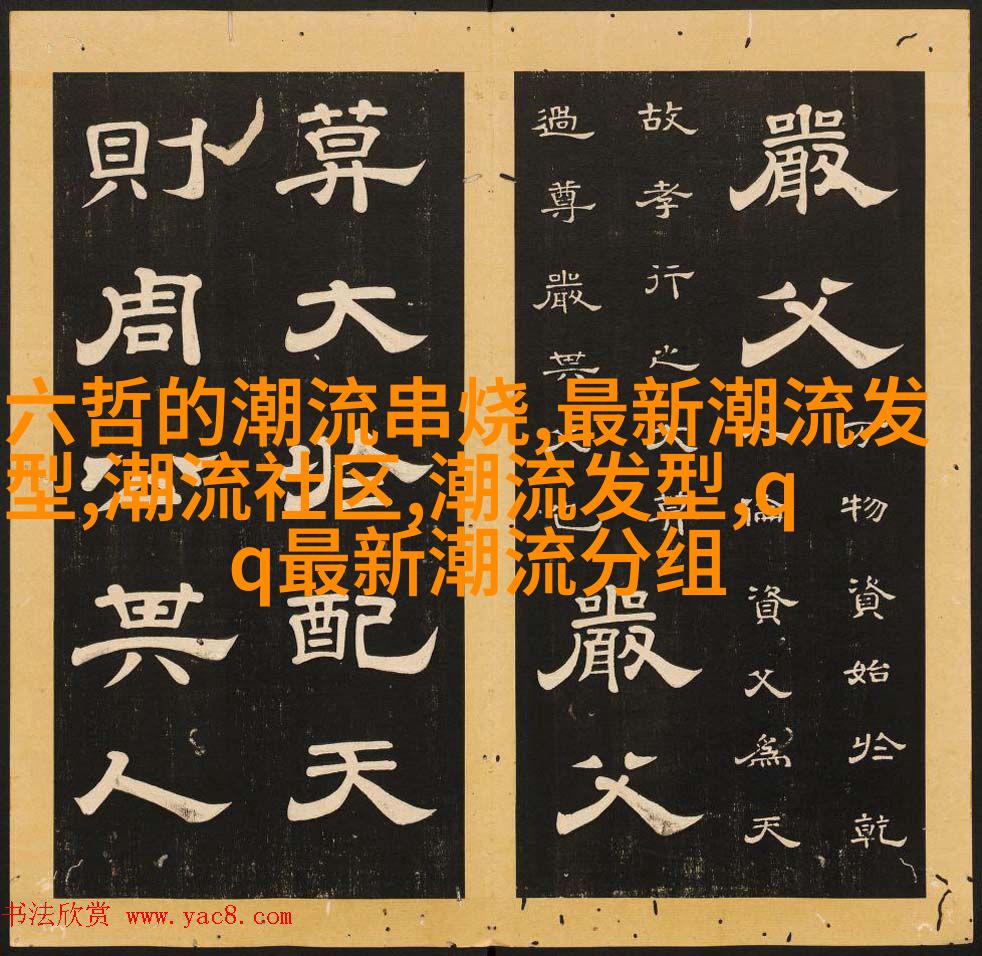 六哲的潮流串烧,最新潮流发
型,潮流社区,潮流发型,q
q最新潮流分组
嚴父
万物資始於乾
人倫資父為天
故孝行之大莫
過尊嚴其父也
嚴父
莫大於配天
則周公其人
书法欣赏 www.yac8.com